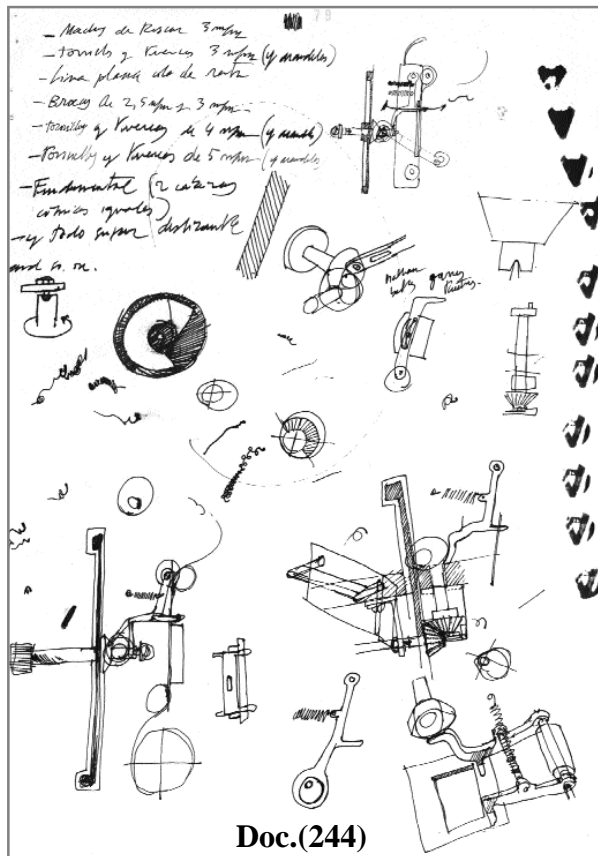 - Machos de Roscar 3 m/m
- tornillos y tuercas 3 m/m (y arandelas)
- Lima plana de
- Brocas de 2,5 m/m y 3 m/m
- tornillos y tuercas de 4 m/m (y arandelas)
- Tornillos y tuercas de 5 m/m (y arandelas)
- Fundamental (2
cónicos iguales)
- y todo super deslizante
and so. on.
Doc.(244)